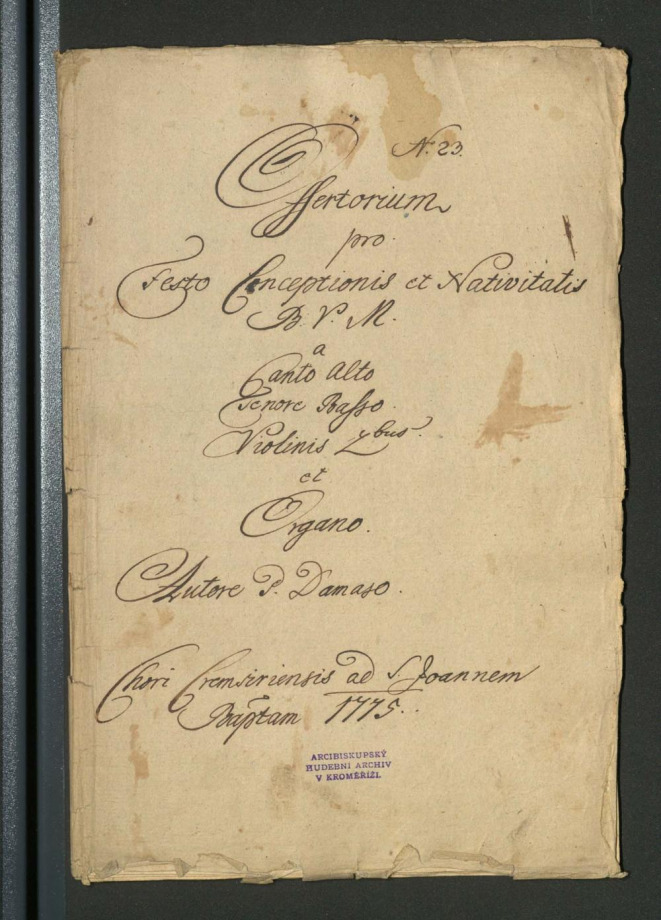 N. 23.
Offertorium
pro.
Festo Conceptionis et Nativitatis
B. V. M.
a
Canto Alto
Tenore Basso.
Violinis 2bus.
et
Organo.
Autore P. Damaso.
Chori Cremsiriensis ad S. Joannem
Baptam 1775.
ARCIBISKUPSKÝ
HUDEBNÍ ARCHIV
V KROMĚŘÍŽI.